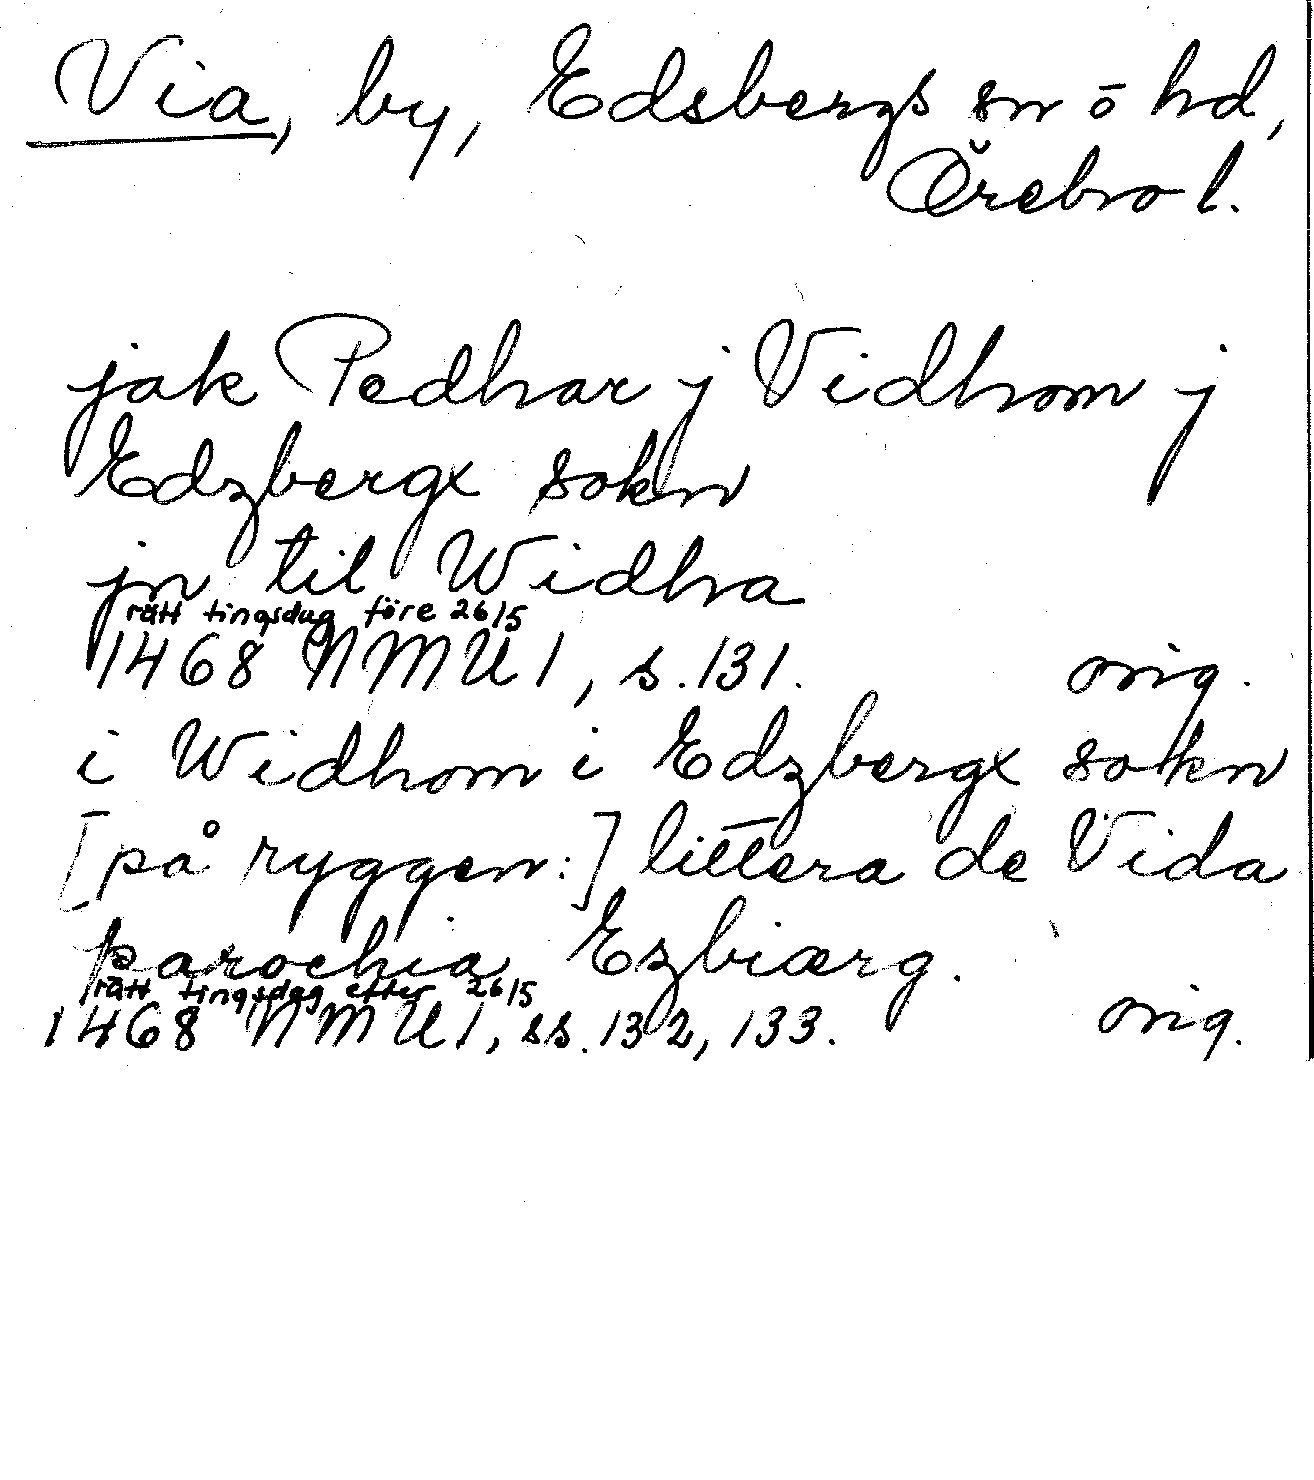 Via, by, Edsbergs sn o hd,
Örebro l.
jak Pedhar j Vidhom j
Edzbergx sokn
jn til Widha
rätt tingsdag före 26/5
1468 NMU 1, s. 131. orig.
i Widhom i Edzbergx sokn
[på ryggen:] littera de Vida
parochia Ezbiærg.
rätt tingsdag efter 26/5
1468 NMU 1, ss. 132, 133. orig.